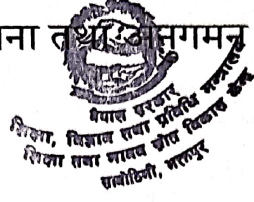 ना तथा अनुगमन
नेपाल सरकार
शिक्षा, विज्ञान तथा प्रविधि मन्त्रालय
शिक्षा तथा मानव स्रोत विकास केन्द्र
सानोठिमी, भक्तपुर